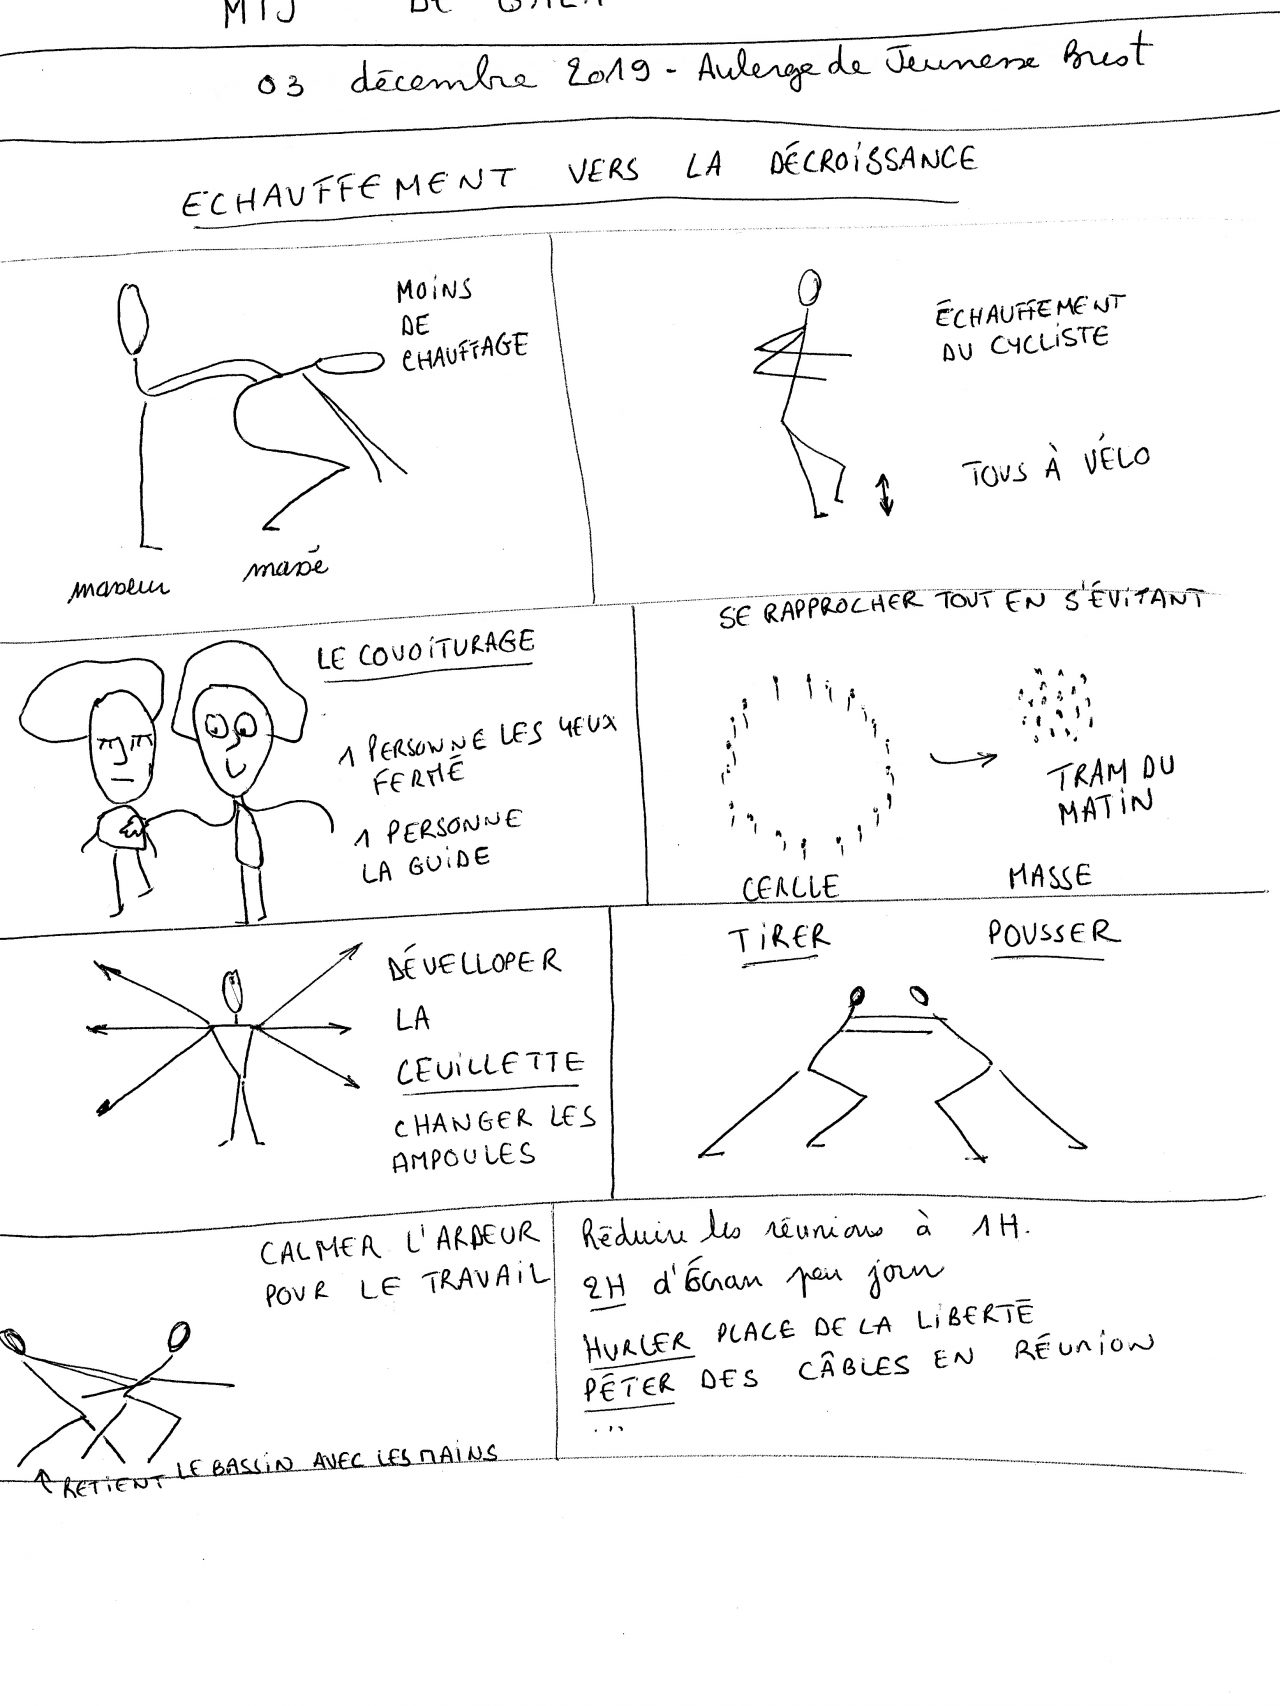 MTJ DE
03 décembre 2019 - Auberge de Jeunesse Brest
ECHAUFFEMENT VERS LA DÉCROISSANCE
MOINS
DE
CHAUFFAGE
masseur
massé
ÉCHAUFFEMENT
DU CYCLISTE
TOUS À VÉLO
LE COVOITURAGE
1 PERSONNE LES YEUX
FERMÉ
1 PERSONNE
LA GUIDE
SE RAPPROCHER TOUT EN S'ÉVITANT
TRAM DU
MATIN
CERCLE
MASSE
DÉVELLOPER
LA
CEUILLETTE
CHANGER LES
AMPOULES
TIRER
POUSSER
CALMER L'ARDEUR
POUR LE TRAVAIL
RETIENT LE BASSIN AVEC LES MAINS
Réduire les réunions à 1H.
2H d'Écran par jour
HURLER PLACE DE LA LIBERTÉ
PÉTER DES CÂBLES EN RÉUNION
...